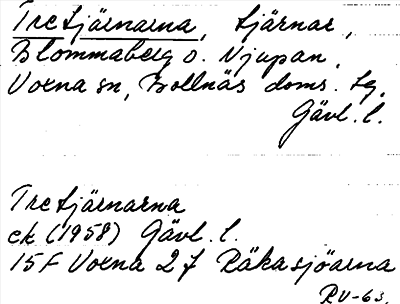 Tretjärnarna, tjärnar,
Blommaberg o. Njupan,
Voxna sn, Bollnäs doms. tg,
Gävl. l.
Tretjärnarna
ek (1958) Gävl. l.
15F Voxna 2f Räkasjöarna
RV-63.